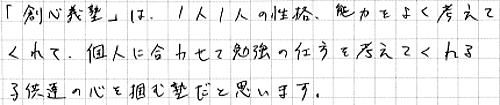 「創心義塾」は、1人1人の性格、能力をよく考えて
くれて、個人に合わせて勉強の仕方を考えてくれる
子供達の心を掴む塾だと思います。